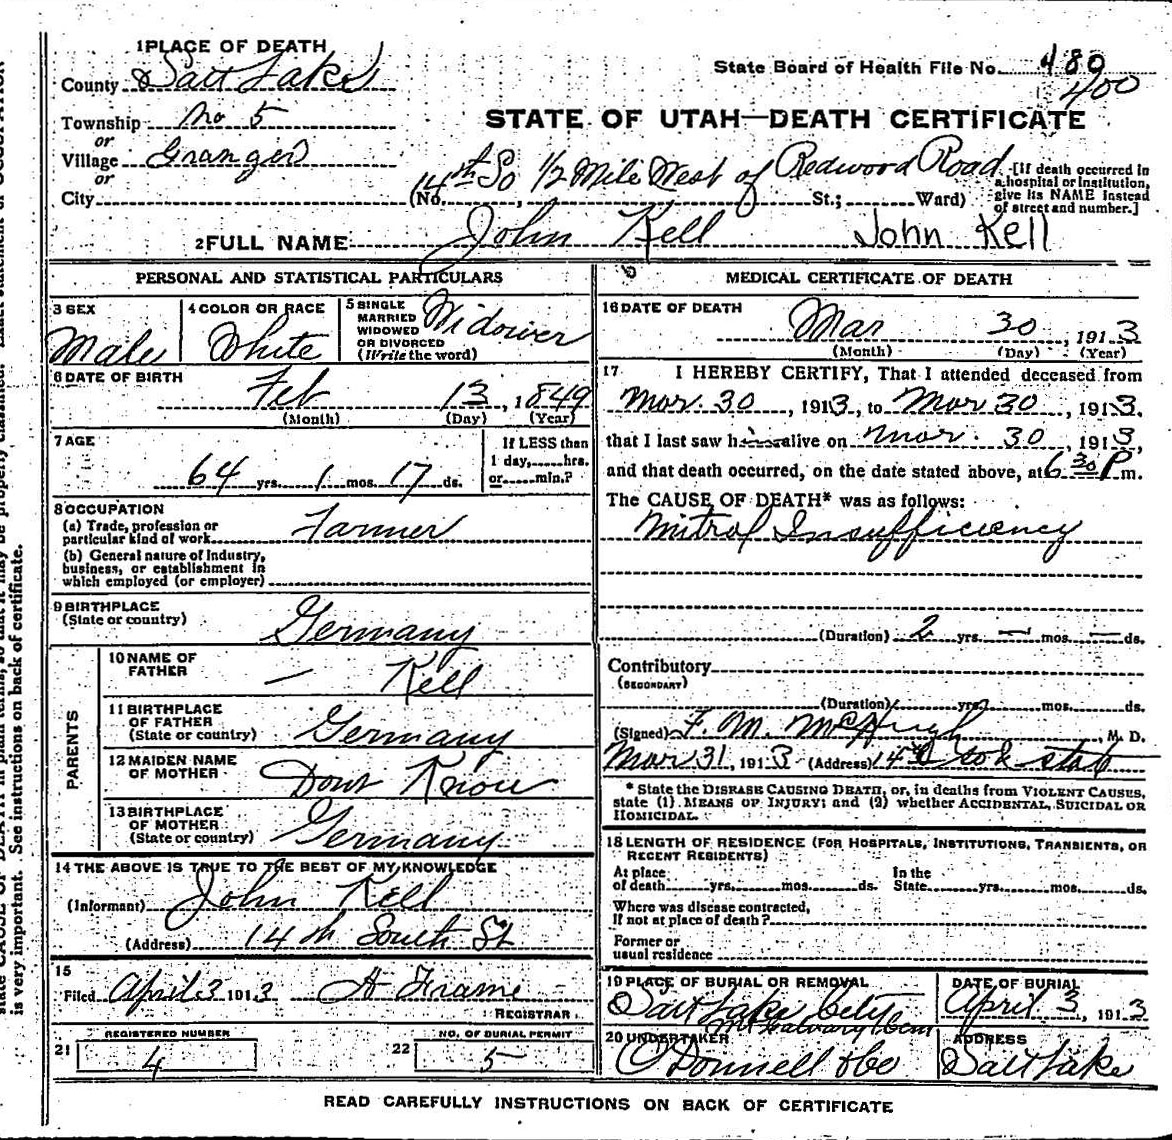 1 PLACE OF DEATH
County Salt Lake
State Board of Health File No. 480
400
Township No 5
or
STATE OF UTAH—DEATH CERTIFICATE
Village Granger
or
City (No. 14th So 1/2 Mile West of Redwood Road St.; Ward)
[If death occurred in
a hospital or institution,
give its NAME instead
of street and number.]
2 FULL NAME John Kell John Kell
PERSONAL AND STATISTICAL PARTICULARS
3 SEX
Male
4 COLOR OR RACE
White
5 SINGLE
MARRIED
WIDOWED
OR DIVORCED
(Write the word)
Widower
6 DATE OF BIRTH
Feb 13, 1849
(Month) (Day) (Year)
7 AGE
64 yrs. 1 mos. 17 ds.
If LESS than
1 day,......hrs.
or......min.?
8 OCCUPATION
(a) Trade, profession or
particular kind of work Farmer
(b) General nature of Industry,
business, or establishment in
which employed (or employer)
9 BIRTHPLACE
(State or country) Germany
PARENTS
10 NAME OF
FATHER — Kell
11 BIRTHPLACE
OF FATHER
(State or country) Germany
12 MAIDEN NAME
OF MOTHER Dont Know
13 BIRTHPLACE
OF MOTHER
(State or country) Germany
14 THE ABOVE IS TRUE TO THE BEST OF MY KNOWLEDGE
(Informant) John Kell
(Address) 14th South St
15
Filed April 3 1913
REGISTRAR
REGISTERED NUMBER
21 4
NO. OF BURIAL PERMIT
22 5
MEDICAL CERTIFICATE OF DEATH
16 DATE OF DEATH
Mar 30, 1913
(Month) (Day) (Year)
17 I HEREBY CERTIFY, That I attended deceased from
Mar. 30, 1913, to Mar 30, 1913.
that I last saw h alive on Mar. 30, 1913,
and that death occurred, on the date stated above, at 6 30 P m.
The CAUSE OF DEATH* was as follows:
Mitral Insufficiency
(Duration) 2 yrs. — mos. — ds.
Contributory
(SECONDARY)
(Duration) yrs. mos. ds.
(Signed) F. M. McHugh, M. D.
Mar 31, 1913 (Address)
* State the DISEASE CAUSING DEATH, or, in deaths from VIOLENT CAUSES,
state (1) MEANS OF INJURY; and (2) whether ACCIDENTAL, SUICIDAL OR
HOMICIDAL.
18 LENGTH OF RESIDENCE (FOR HOSPITALS, INSTITUTIONS, TRANSIENTS, OR
RECENT RESIDENTS)
At place
of death......yrs.......mos.......ds.
In the
State......yrs.......mos.......ds.
Where was disease contracted,
If not at place of death?
Former or
usual residence
19 PLACE OF BURIAL OR REMOVAL
Salt Lake City
Mt Calvary Cem
DATE OF BURIAL
April 3, 1913
20 UNDERTAKER
O'Donnell & Co
ADDRESS
Salt Lake
READ CAREFULLY INSTRUCTIONS ON BACK OF CERTIFICATE
is very important. See instructions on back of certificate.